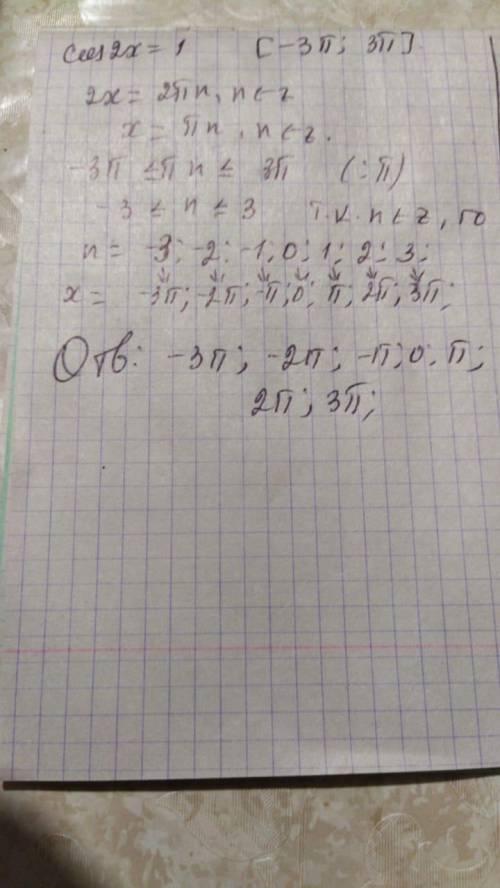 cos2x = 1 [-3π; 3π].
2x = 2πn, n ∈ z
x = πn, n ∈ z.
-3π ≤ πn ≤ 3π (:π)
-3 ≤ n ≤ 3 т.к. n ∈ z, то
n = -3; -2; -1; 0; 1; 2; 3;
x = -3π; -2π; -π; 0; π; 2π; 3π;
Отв: -3π; -2π; -π; 0; π;
2π; 3π;